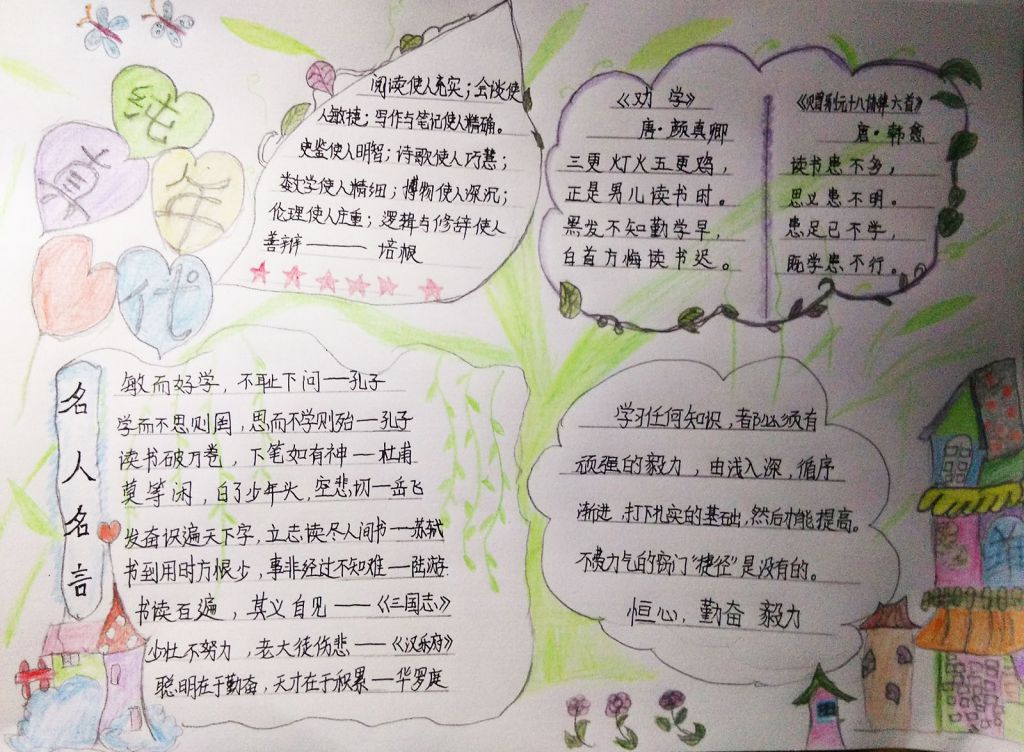 纯
真
年
代
阅读使人充实；会谈使
人敏捷；写作与笔记使人精确。
史鉴使人明智；诗歌使人巧慧；
数学使人精细；博物使人深沉；
伦理使人庄重；逻辑与修辞使人
善辩——— 培根
《劝 学》
唐·颜真卿
三更灯火五更鸡，
正是男儿读书时。
黑发不知勤学早，
白首方悔读书迟。
十八
六首》
唐·韩愈
读书患不多，
思义患不明。
患足已不学，
既学患不行。
名人名言
敏而好学，不耻下问——孔子
学而不思则罔，思而不学则殆—孔子
读书破万卷，下笔如有神—杜甫
莫等闲，白了少年头，空悲切—岳飞
发奋识遍天下字，立志读尽人间书—苏轼
书到用时方恨少，事非经过不知难—陆游
书读百遍，其义自见——《三国志》
少壮不努力，老大徒伤悲——《汉乐府》
聪明在于勤奋，天才在于积累—华罗庭
学习任何知识，都必须有
顽强的毅力，由浅入深，循序
渐进，打下扎实的基础，然后才能提高。
不费力气的窍门“捷径”是没有的。
恒心，勤奋 毅力